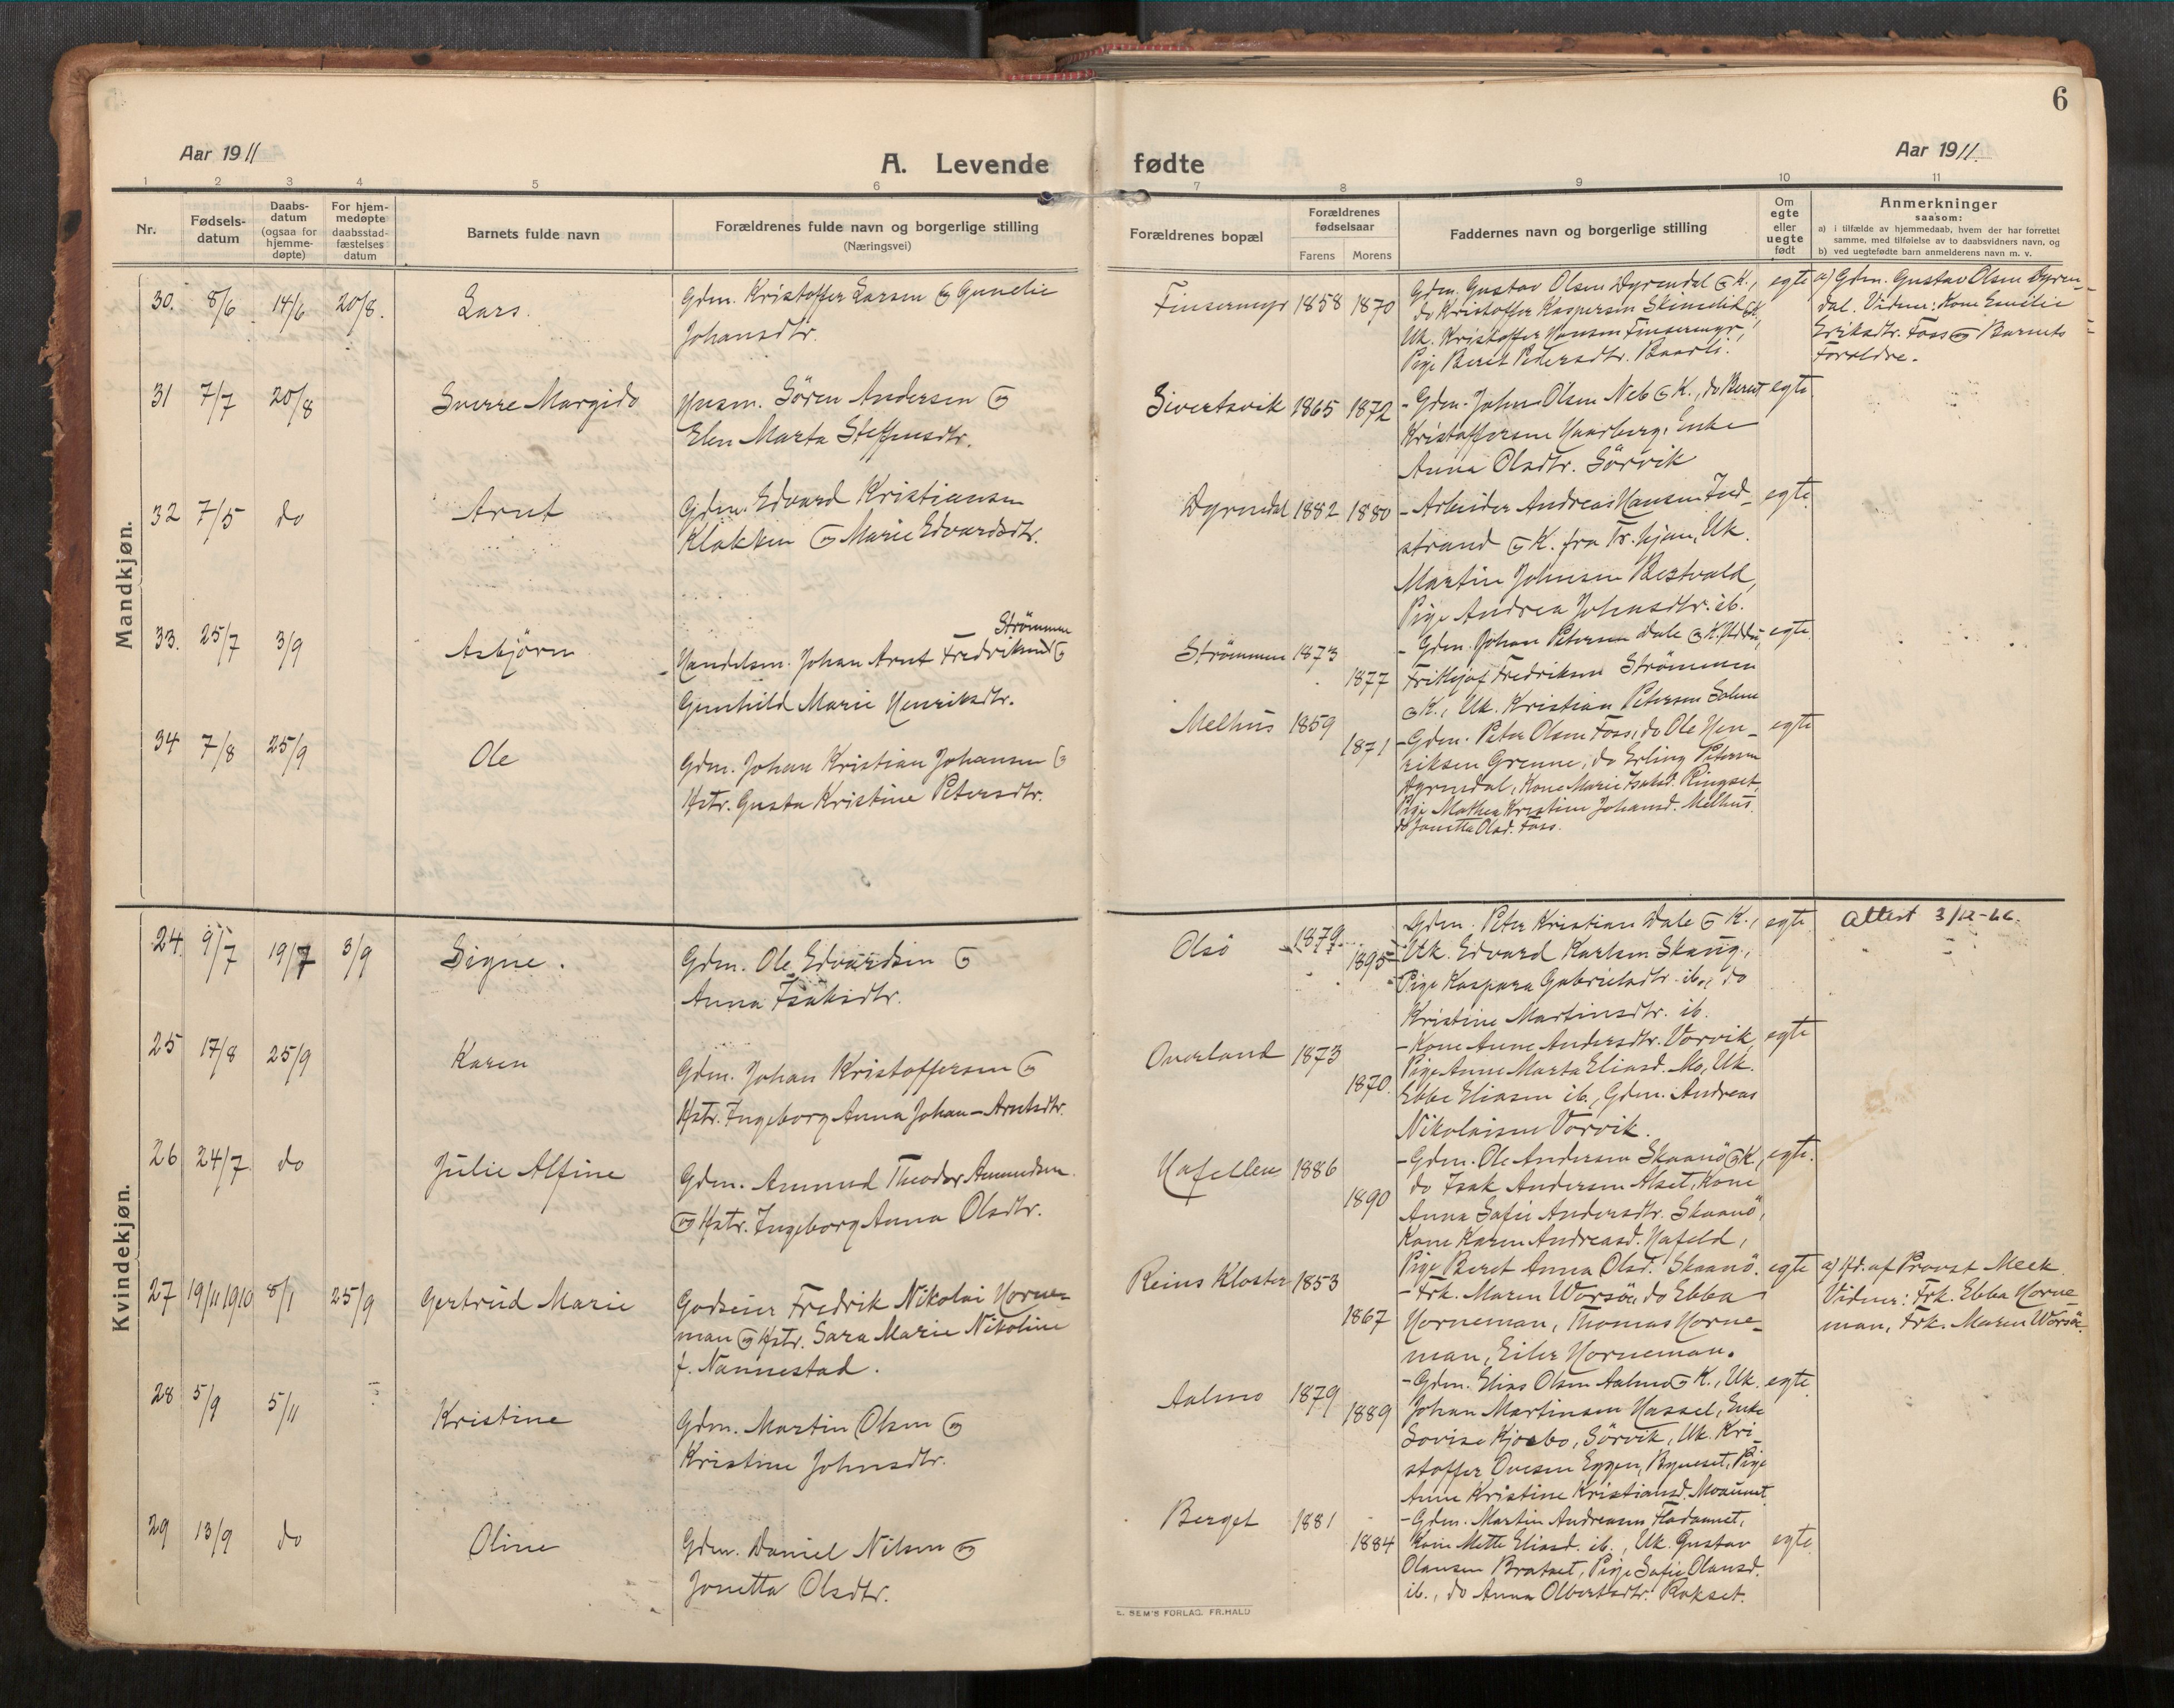 6
Aar 1911
A. Levende fødte
Aar 1911.
1 2 3 4 5 6 7 8 9 10 11
Nr.
Fødsels-
datum
Daabs-
datum
(ogsaa for
hjemme-
døpte)
For hjem-
medøpte
daabsstad-
fæstelses
datum
Barnets fulde navn
Forældrenes fulde navn og borgerlige stilling
(Næringsvei)
Forældrenes bopæl
Forældrenes
fødselsaar
Farens Morens
Faddernes navn og borgerlige stilling
Om
egte
eller
uegte
født
Anmerkninger
saasom:
a) i tilfælde av hjemmedaab, hvem der har forrettet
samme, med tilføielse av to daabsvidners navn, og
b) ved uegtefødte barn anmelderens navn m. v.
Mandkjøn.
30. 8/6 14/6 20/8. Lars.
Gdm. Kristoffer Larsen og Gunelie
Johansdtr.
Finsermyr 1858 1870
Gdm. Gustav Olsen Dyrendal og K.,
do Kristoffer Kaspersen
Uk. Kristoffer Hansen Finsermyr,
Pige Beret Pedersdtr. Baarli.
egte
a) Gdm. Gustav Olsen Dyren-
dal. Vidner: Kone Emelie
Eriksdtr. Foss og Barnets
Forældre.
31 7/7 20/8 Sverre Margido
Husm. Sören Andersen og
Elen Marta Steffensdtr.
Sivertsvik 1865 1872
- Gdm. John Olsen Neb og K., do Berent
Kristoffersen Haarberg, Enke
Anna Olsdtr. Sörvik
egte
32 7/5 do Arnt
Gdm. Edvard Kristiansen
Klakken og Marie Edvardsdtr.
Dyrendal 1882 1880
- Arbeider Andreas Hansen Ind-
strand og K. fra Tr.hjem, Uk.
Martin Johnsen Restvold,
Pige Andrea Johnsdtr. ib.
egte.
33. 25/7 3/9 Asbjörn
Strömmen
Handelsm. Johan Arnt Fredriksen og
Gunhild Marie Henriksdtr.
Strömmen 1873 1877
- Gdm. Johan Petersen Dale og K.
Frithjof Fredriksen Strömmen
og K., Uk. Kristian Petersen
egte.
34 7/8 25/9 Ole
Gdm. Johan Kristian Johansen og
Hstr. Gusta Kristine Petersdtr.
Melhus 1859 1871
- Gdm. Peter Olsen Foss, do Ole Hen-
riksen Grenne, do Erling Petersen
Dyrendal, Kone Marie Isaksd. Ringset,
Pige Mathea Kristine Johansd. Melhus.
do Jonetta Olsd. Foss.
egte
Kvindekjøn.
24 9/7 19/7 3/9 Signe.
Gdm. Ole Edvardsen og
Anna Isaksdtr.
Olsö 1879. 1895
Gdm. Peter Kristian Dale og K.,
Uk. Edvard Karlsen Skaug,
Pige Kaspara Gabrielsdtr. ib., do
Kristine Martinsdtr. ib.
egte
Attest 3/12-66.
25 17/8 25/9 Karen
Gdm. Johan Kristoffersen og
Hstr. Ingeborg Anna Johan-Arntsdtr.
Overland 1873 1870.
- Kone Anne Andersdtr. Vorvik,
Pige Anne Marta Eliasd. Mo, Uk.
Ebbe Eliasen ib., Gdm. Andreas
Nikolaisen Vorvik.
egte
26 24/7. do Julie Alfine
Gdm. Amund Theodor Amundsen
og Hstr. Ingeborg Anna Olsdtr.
Hafellen 1886 1890
- Gdm. Ole Andersen Skaanö og K.,
do Isak Andersen Alset, Kone
Anna Sofie Andersdtr. Skaanö,
Kone Karen Andreasd. Hafeld,
Pige Beret Anna Olsd. Skaanö.
egte.
27 19/11 1910 8/1 25/9 Gertrud Marie
Godseier Fredrik Nikolai Horne-
man og Hstr. Sara Marie Nikoline
f. Nannestad.
Reins Kloster 1853 1867
- Frk. Maren Worsöe, do Ebba
Horneman, Thomas Horne-
man, Eiler Horneman.
egte
a) Hd. af Provst Meek
Vidner: Frk. Ebba Horne-
man, Frk. Maren Worsöe.
28 5/9 5/11 Kristine
Gdm. Martin Olsen og
Kristine Johnsdtr.
Aalmo 1879 1889
- Gdm. Elias Olsen Aalmo og K., Uk.
Johan Martinsen Hassel, Enke
Lovise Kjosbo, Sörvik, Uk. Kri-
stoffer Ovesen Eggen, Byneset, Pige
Anne Kristine Kristiansd. Moaunet.
egte
29 13/9 do Oline
Gdm. Daniel Nilsen og
Jonetta Olsdtr.
Berget 1881 1884
- Gdm. Martin Andreasen Flodaunet,
Kone Mette Eliasd. ib., Uk. Gustav
Olausen Bratset, Pige Sofie Olausd.
ib., do Anna Olbertsdtr. Rokset.
egte
E. SEM'S FORLAG. FR.HALD